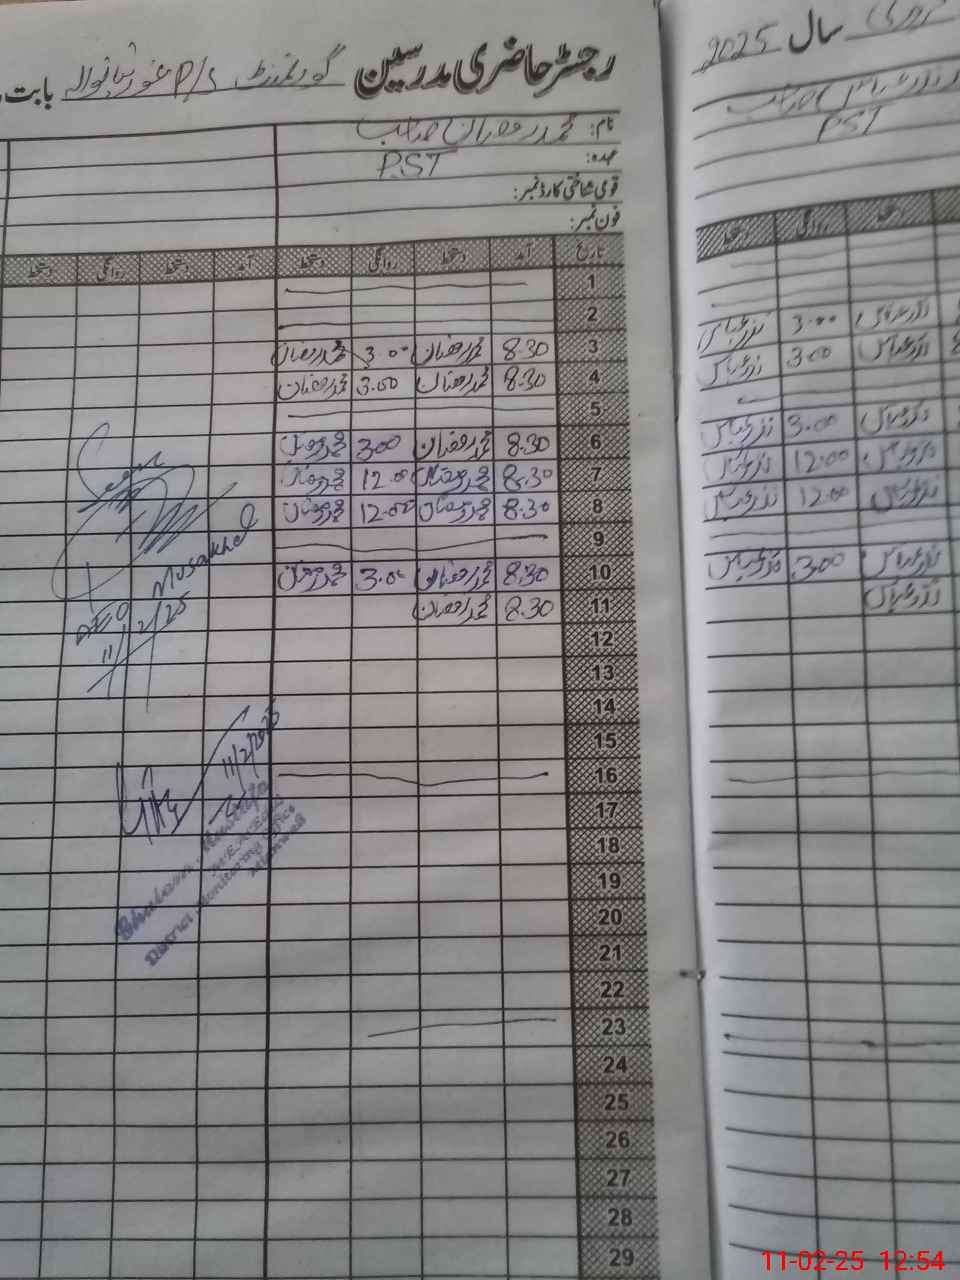 رجسٹر حاضری مدرسین گورنمنٹ P/S بابت
سال 2025
نام: محمد رمضان صاحب
عہدہ: PST
PST
قومی شناختی کارڈ نمبر:
فون نمبر:
تاریخ آمد دستخط روانگی دستخط آمد دستخط روانگی دستخط
دستخط روانگی دستخط
1
2
3 8.30 محمد رمضان 3.00 محمد رمضان
3.00
4 8.30 محمد رمضان 3.00 محمد رمضان
3.00
5
6 8.30 محمد رمضان 3.00 محمد رمضان
3.00
7 8.30 محمد رمضان 12.00 محمد رمضان
12.00
8 8.30 محمد رمضان 12.00 محمد رمضان
12.00
9
10 8.30 محمد رمضان 3.00 محمد رمضان
3.00
11 8.30 محمد رمضان
12
13
14
15
16
17
18
19
20
21
22
23
24
25
26
27
28
29
AEO Musakhel
11/2/25
11/2/2025
District Monitoring Office
Mianwali
11-02-25 12:54